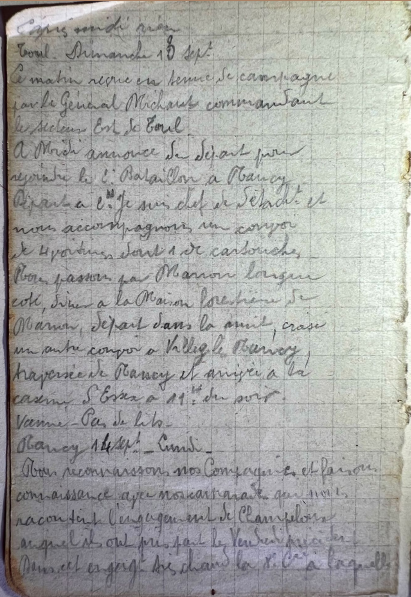 Après midi rien
Toul. Dimanche 13 sept
Le matin revue en tenue de campagne
par le Général Michaut commandant
le secteur Est de Toul.
A Midi annonce du départ pour
rejoindre le Bataillon à Nancy
Départ à Je suis chef de détacht et
nous accompagnons un convoi
de 4 voitures dont 1 de cartouches
Nous passons par Maron longue
cote, diner a la Maison forestière de
Maron, départ dans la nuit, croise
un autre convoi a Nancy,
traversée de Nancy et arrivée a la
caserne à 11h du soir.
Vanné - Pas de lits -
Nancy 14 sept - Lundi -
Nous reconnaissons nos Compagnies et faisons
connaissance avec nos camarades qui nous
racontent l'engagement de Champenoux
auquel ils ont pris part le Vendredi précédent
chaud la 8e Cie à laquelle